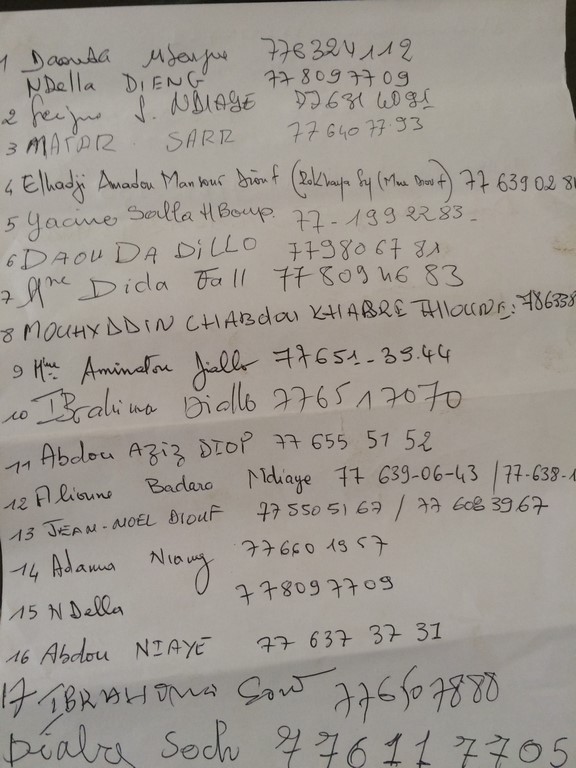 1 Daouda 776324112
NDella DIENG 778097709
2 Serigne S. NDIAYE
3 MATAR SARR 77 640 77.93
4 Elhadji Amadou Mansour Diouf (Rokhaya Sy (Mme Diouf) 77 639 02 8
5 Yacine 77-199 22 83-
6 DAOUDA DiLLO 77980 67 81
7 Mme Dida Fall 77 809 46 83
8 MOUHYDDIN CHABDOU KHABRE : 786338
9 Mme Aminatou Diallo 77651-39.44
10 IBrahima Diallo 776517070
11 Abdou AZiZ DIOP 77 655 51 52
12 Alioune Badara Ndiaye 77 639-06-43 / 77-638-1
13 JEAN-NOEL DIOUF 77 550 51 67 / 77 608 39 67
14 Adama Niang 77660 1957
15 NDella 778097709
16 Abdou NIAYE 77 637 37 31
17 IBRAHIMA Sow 776507888
Dialra Soch 776117705